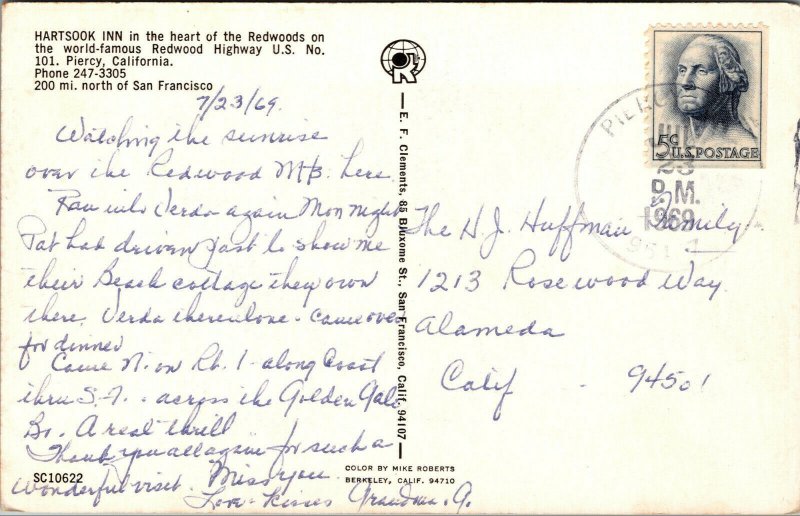 HARTSOOK INN in the heart of the Redwoods on
the world-famous Redwood Highway U.S. No.
101. Piercy, California.
Phone 247-3305
200 mi. north of San Francisco
7/23/69.
Watching the sunrise
over the Redwood Mts. here
Ran into Verda again Mon night
Pat had driven fast to show me
their Beach cottage they own
there. Verda there alone - came over
for dinner
Came N. on Rt. 1 - along Coast
thru S.F. - across the Golden Gate
Br. A real thrill.
Thank you all again for such a
wonderful visit. Miss you.
Love - Kisses Grandma G.
SC10622
E. F. Clements, 85 Bluxome St., San Francisco, Calif. 94107
COLOR BY MIKE ROBERTS
BERKELEY, CALIF. 94710
5c
U.S. POSTAGE
JUL
23
P.M.
1969
The H.J. Huffman Family
1213 Rosewood Way.
Alameda
Calif - 94501